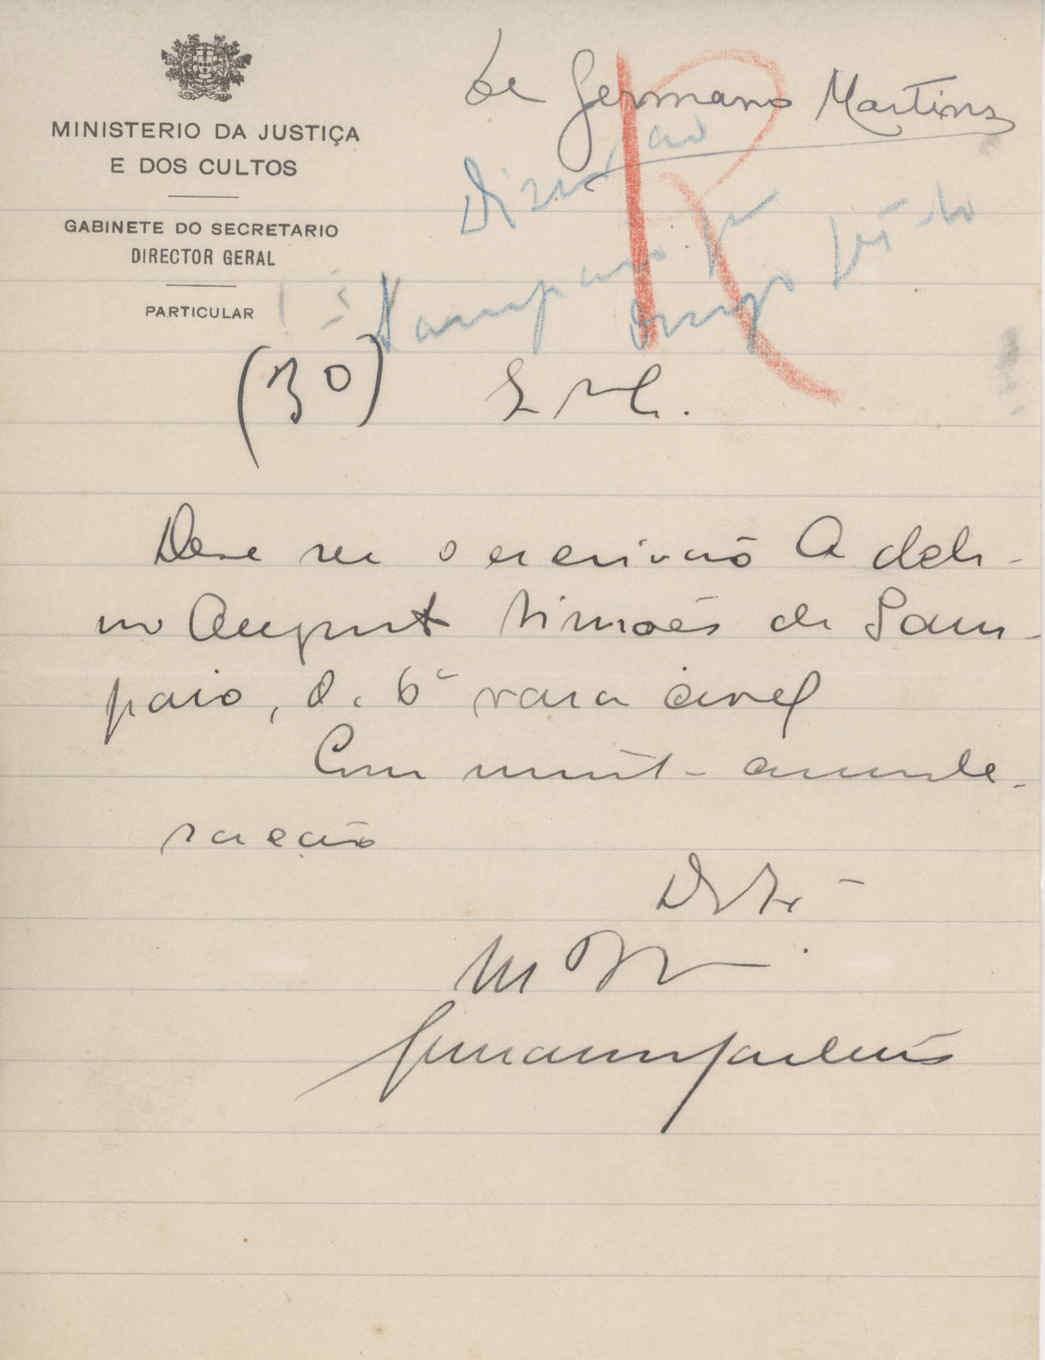 MINISTERIO DA JUSTIÇA
E DOS CULTOS
GABINETE DO SECRETARIO
DIRECTOR GERAL
PARTICULAR
de Germano Martins
Sampaio
(30)
Deve ser o escrivão Adeli-
no Augusto Simões de Sam-
paio, da 6ª vara civel
Com muita conside-
ração
Germano Martins